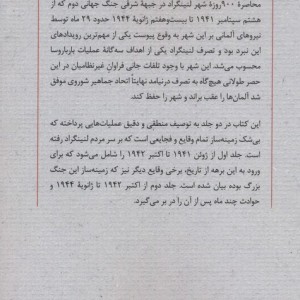 محاصرهٔ ۹۰۰روزهٔ شهر لنینگراد در جبههٔ شرقی جنگ جهانی دوم که از
هشتم سپتامبر ۱۹۴۱ تا بیست‌وهفتم ژانویهٔ ۱۹۴۴ حدود ۲۹ ماه توسط
نیروهای آلمانی بر این شهر به وقوع پیوست یکی از مهم‌ترین رویدادهای
این نبرد بود و تصرف لنینگراد یکی از اهداف سه‌گانهٔ عملیات بارباروسا
محسوب می‌شد. این شهر با وجود تلفات جانی فراوانِ غیرنظامیان در این
حصر طولانی هیچ‌گاه به تصرف درنیامد نهایتاً اتحاد جماهیر شوروی موفق
شد آلمان‌ها را عقب براند و شهر را حفظ کند.
این کتاب در دو جلد به توصیف منطقی و دقیق عملیات‌هایی پرداخته که
بی‌شک زمینه‌ساز تمام وقایع و فجایعی است که بر سر مردم لنینگراد رفته
است. جلد اول از ژوئن ۱۹۴۱ تا اکتبر ۱۹۴۲ را شامل می‌شود که برای
ورود به این برهه از تاریخ، برخی وقایع دیگر نیز که زمینه‌ساز این جنگ
بزرگ بوده بیان شده است. جلد دوم از اکتبر ۱۹۴۲ تا ژانویهٔ ۱۹۴۴ و
حوادث چند ماه پس از آن را در بر می‌گیرد.